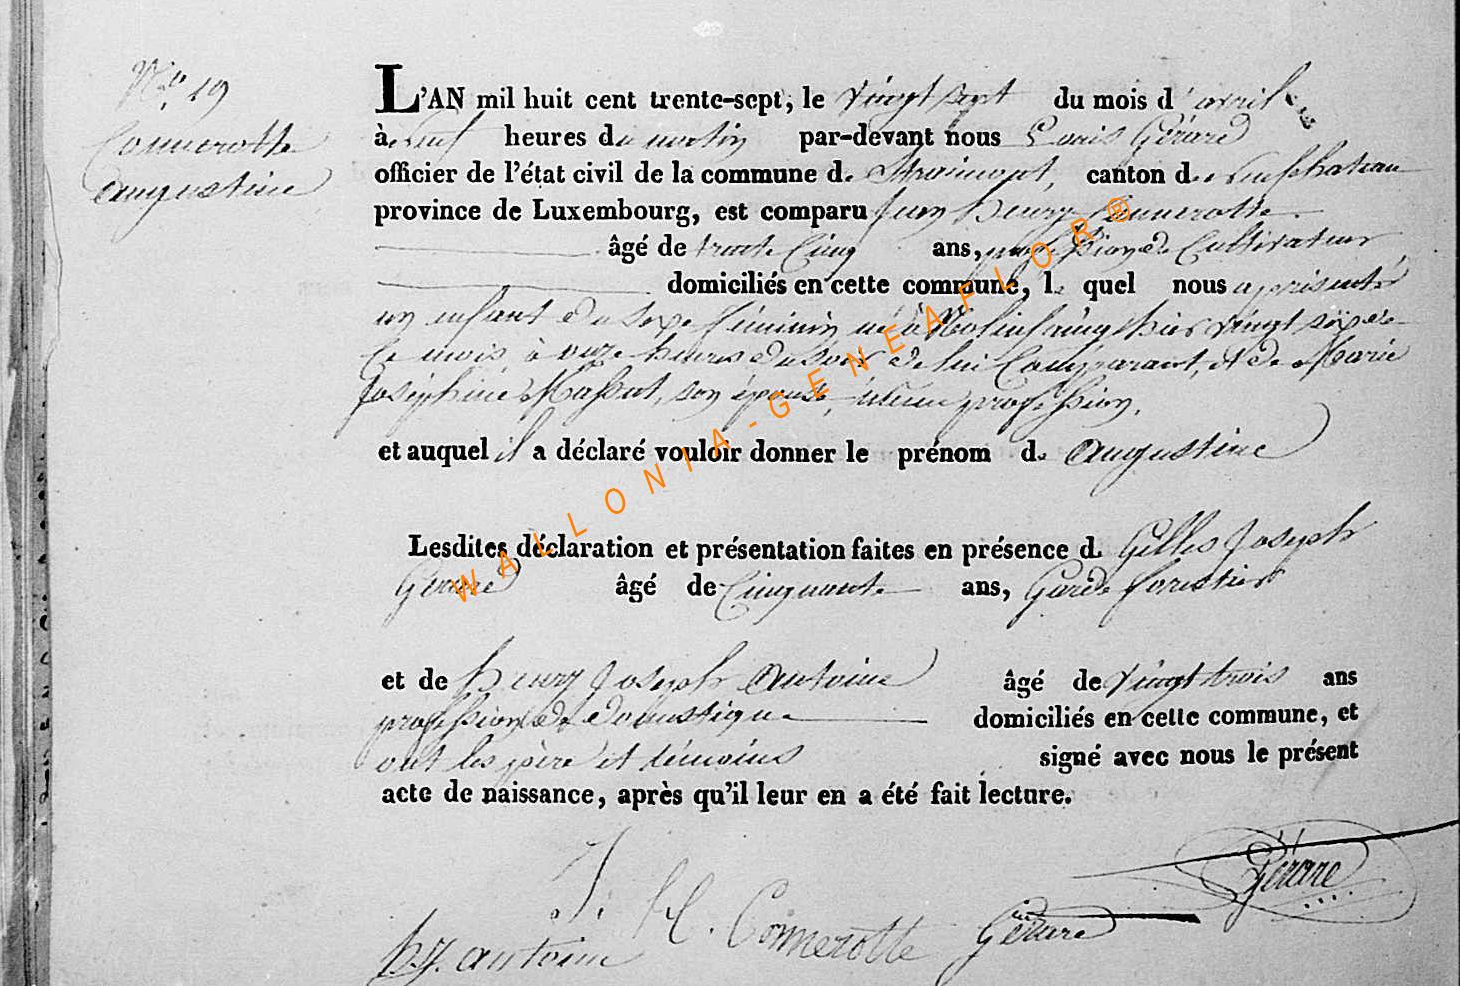 N° 19
Connerotte
Augustine
L'AN mil huit cent trente-sept, le vingt sept du mois d'avril
à neuf heures du matin par-devant nous Louis Gérard
officier de l'état civil de la commune de Straimont, canton de neufchateau
province de Luxembourg, est comparu Jean henry Connerotte
âgé de trente Cinq ans, profession de Cultivateur
domiciliés en cette commune, le quel nous a présenté
un enfant du Sexe féminin né à Molinfaing hier vingt six de
Ce mois à onze heures du Soir de lui Comparant, et de Marie
Joséphine Massut, son épouse, même profession.
et auquel il a déclaré vouloir donner le prénom de Augustine
Lesdites déclaration et présentation faites en présence de Gilles Joseph
Gérard âgé de Cinquante ans, Garde forestier
et de henry Joseph Antoine âgé de vingt trois ans
profession de domestique domiciliés en cette commune, et
ont les père et témoins signé avec nous le présent
acte de naissance, après qu'il leur en a été fait lecture.
Gérard
J. H. Connerotte Gérard
h. J. Antoine
WALLONIA-GENEAFLOR®